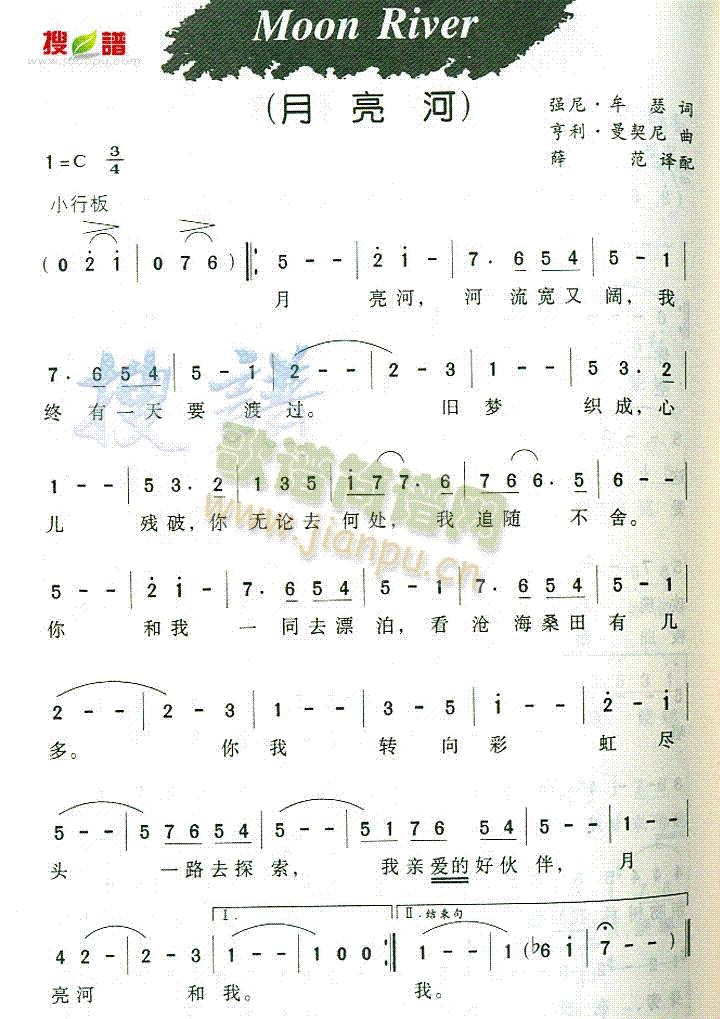 搜谱
www.sooopu.com
Moon River
(月亮河)
强尼·牟瑟 词
亨利·曼契尼 曲
薛范 译配
1=C 3/4
小行板
(0 2 1 | 0 7 6 ) ‖: 5 - - | 2 1 - | 7. 6 5 4 | 5 - 1 |
月 亮河, 河 流宽又阔, 我
7. 6 5 4 | 5 - 1 | 2 - - | 2 - 3 | 1 - - | 5 3. 2 |
终有一天要渡过。 旧梦 织成,心
1 - - | 5 3. 2 | 1 3 5 | 1 7 7. 6 | 7 6 6. 5 | 6 - - |
儿 残破,你 无论去 何处, 我 追随 不 舍。
5 - - | 2 1 - | 7. 6 5 4 | 5 - 1 | 7. 6 5 4 | 5 - 1 |
你 和我 一同去漂泊,看沧海桑田有几
2 - - | 2 - 3 | 1 - - | 3 - 5 | 1 - - | 2 - 1 |
多。 你我 转向彩 虹尽
5 - - | 5 7 6 5 4 | 5 - - | 5 1 7 6 5 4 | 5 - - | 1 - - |
头 一路去探索, 我亲爱的好伙伴, 月
I. II. 结束句
4 2 - | 2 - 3 | 1 - - | 1 0 0 :‖ 1 - - | 1 (♭6 1 | 7 - - ) ‖
亮河 和我。 我。
歌谱简谱网
www.jianpu.cn